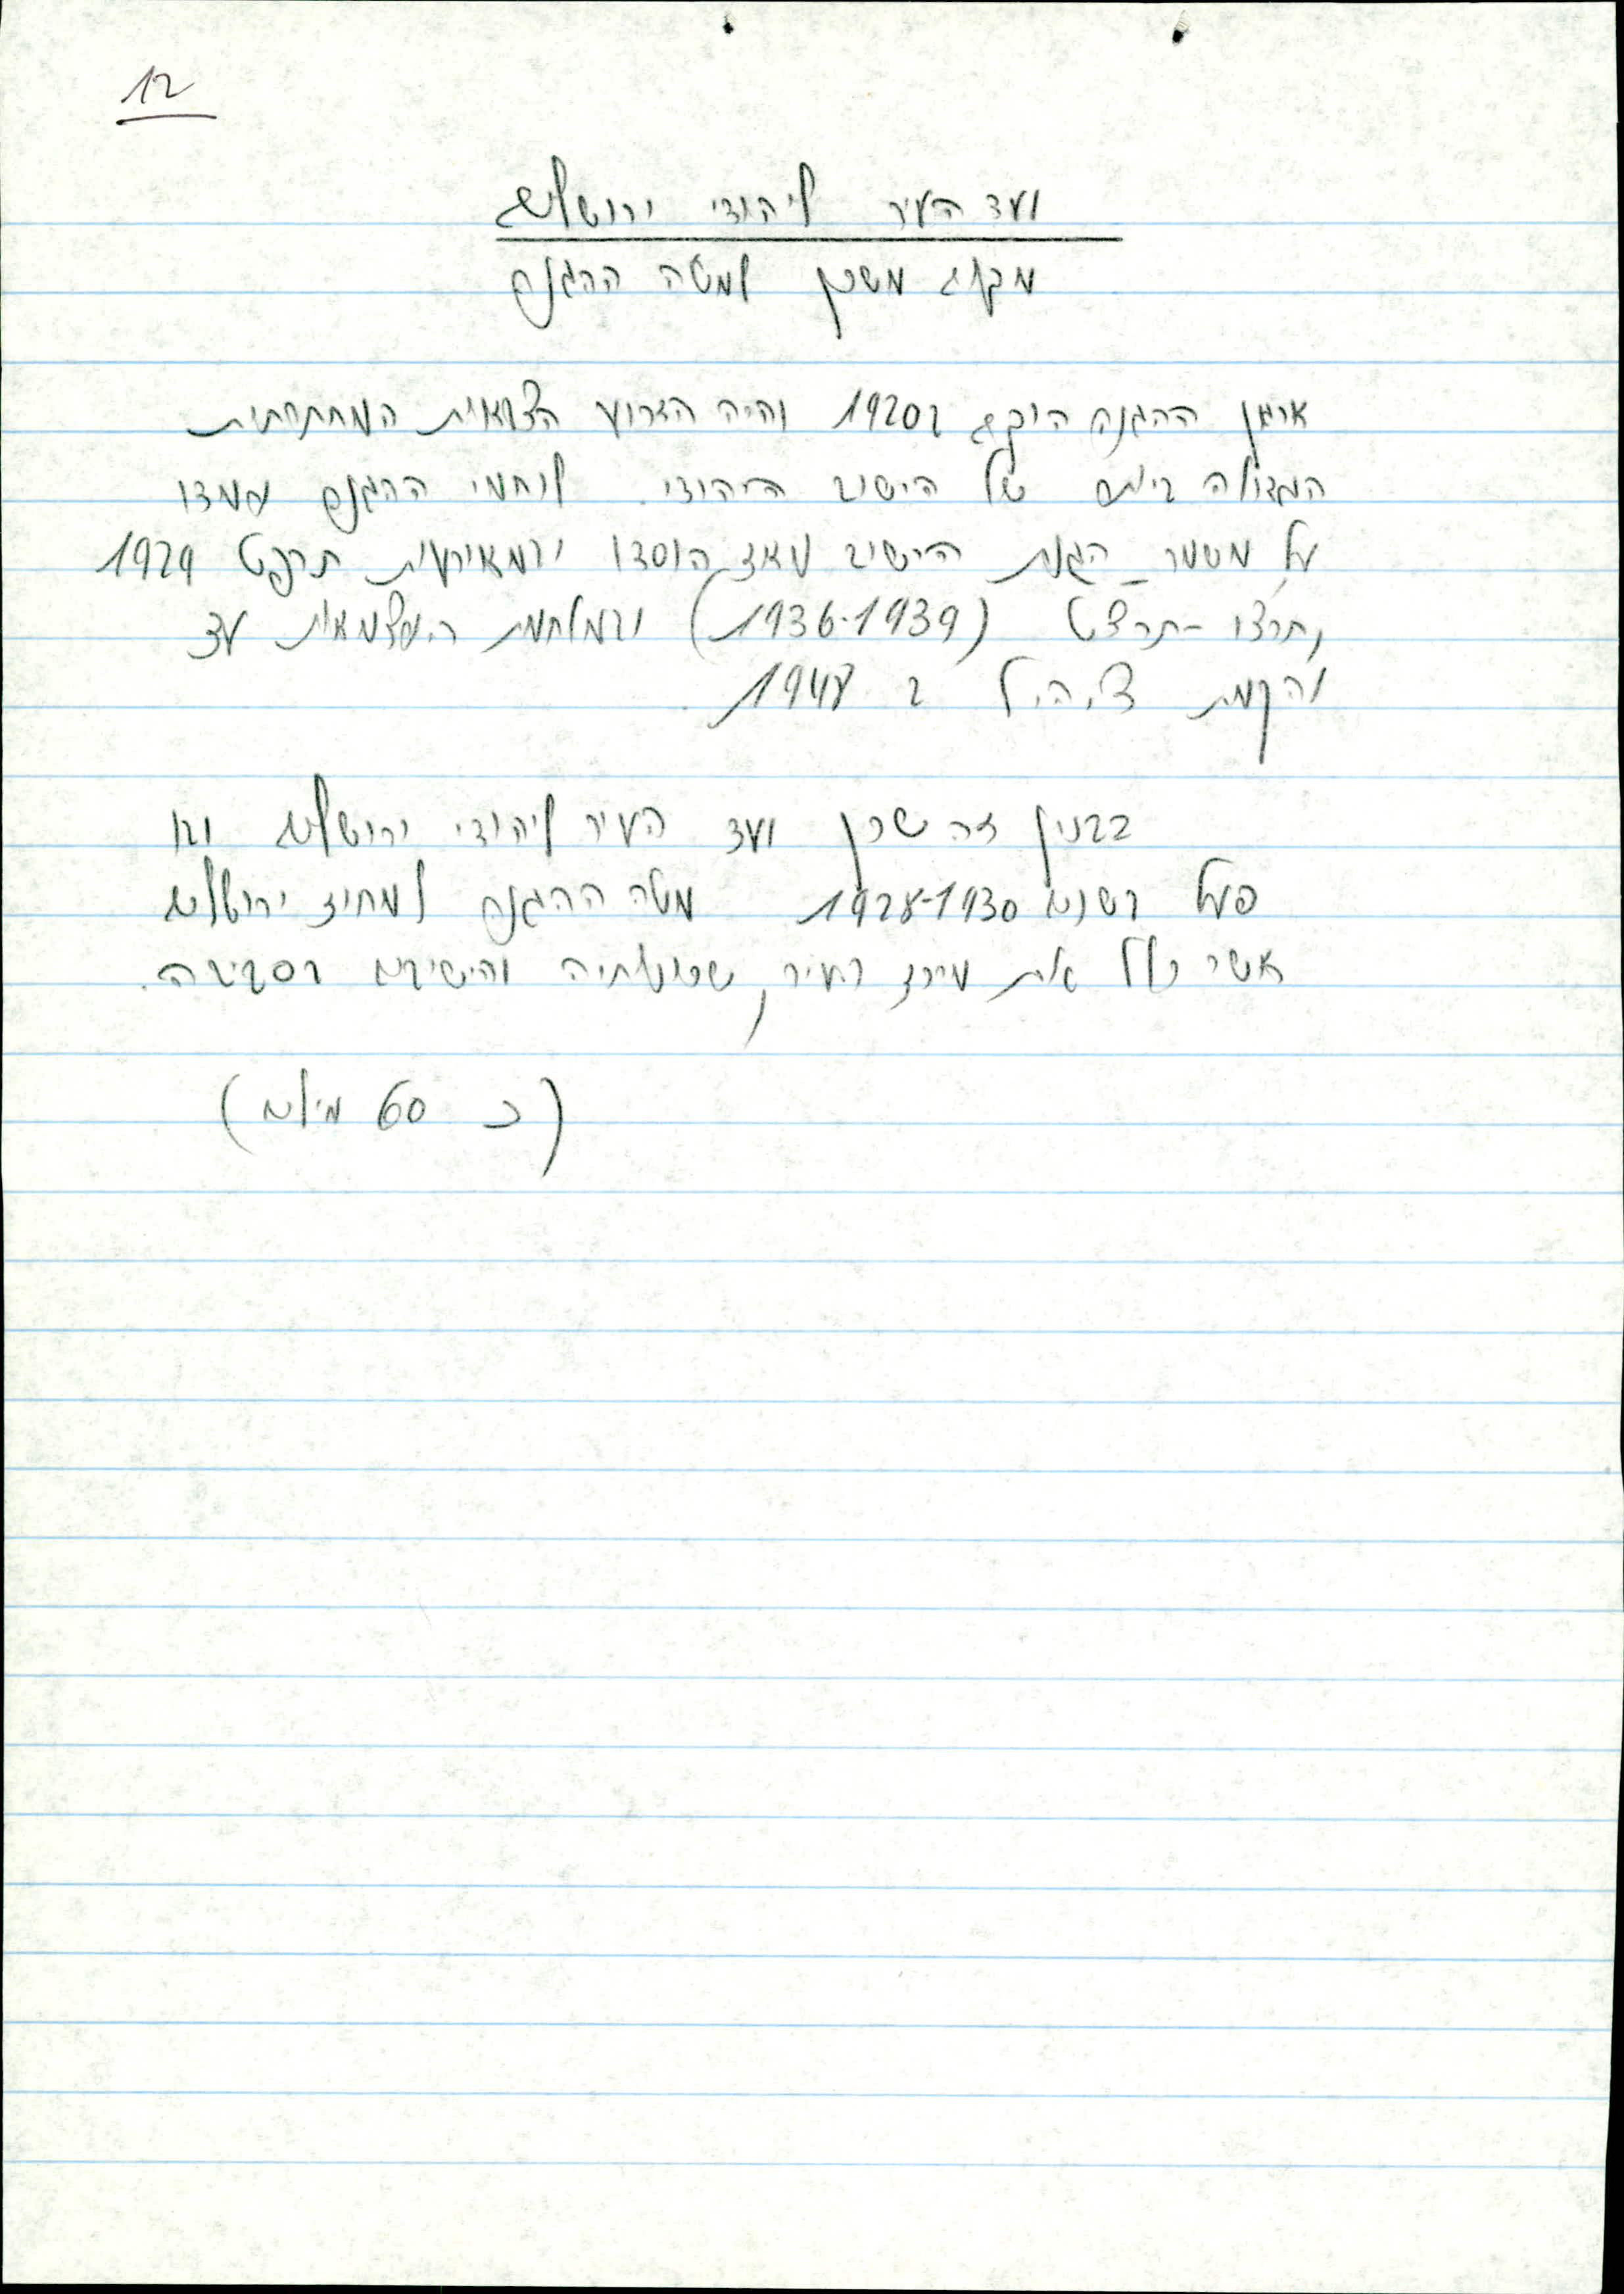 12
ועד העיר ליהודי ירושלים
מקום משכן למטה ההגנה
ארגון ההגנה הוקם ב1920 והיה הזרוע הצבאית המחתרתית
הגדולה ביותר של הישוב היהודי. לוחמי ההגנה עמדו
על משמר הגנת הישוב מאז הוסדו ובמאורעות תרפט 1929
, תרצו - תרצט (1936-1939) ובמלחמת העצמאות עד
להקמת צ.ה.ל ב 1948.
בבנין זה שכן ועד העיר ליהודי ירושלים ובו
פעל בשנים 1928-1930 מטה ההגנה למחוז ירושלים
אשר כלל את מרכז העיר, שכונותיה והישובים בסביבה.
(כ 60 מילים)